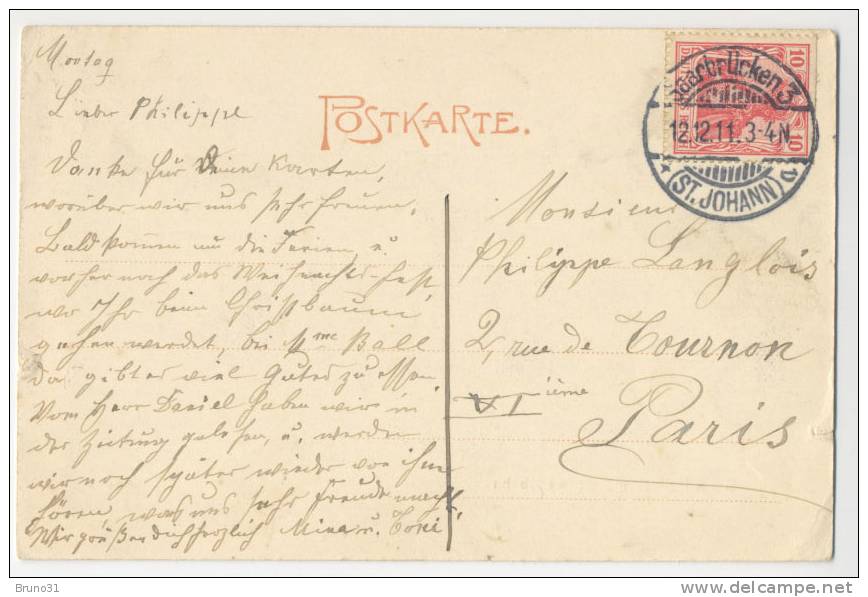 Montag
Lieber Philippe
POSTKARTE.
Danke für Deine Karten,
worüber wir uns sehr freuen.
Bald kommen nun die Ferien, u.
vorher noch das Weihnachts-fest,
wo Ihr beim Christbaum
gehen werdet, bei Mme Ball
da gibt es viel Gutes zu essen.
Vom Herr Daniel haben wir in
der Zeitung gelesen, u. werden
wir noch später wieder von ihm
hören, was uns sehr Freude macht.
Wir grüßen Dich herzlich Mina u. Toni
Saarbrücken 3
12.12.11. 3-4N.
* (ST. JOHANN)
10 10
Monsieur
Philippe Langlois
2, rue de Tournon
VI ième
Paris
Bruno31
www.delcampe.net